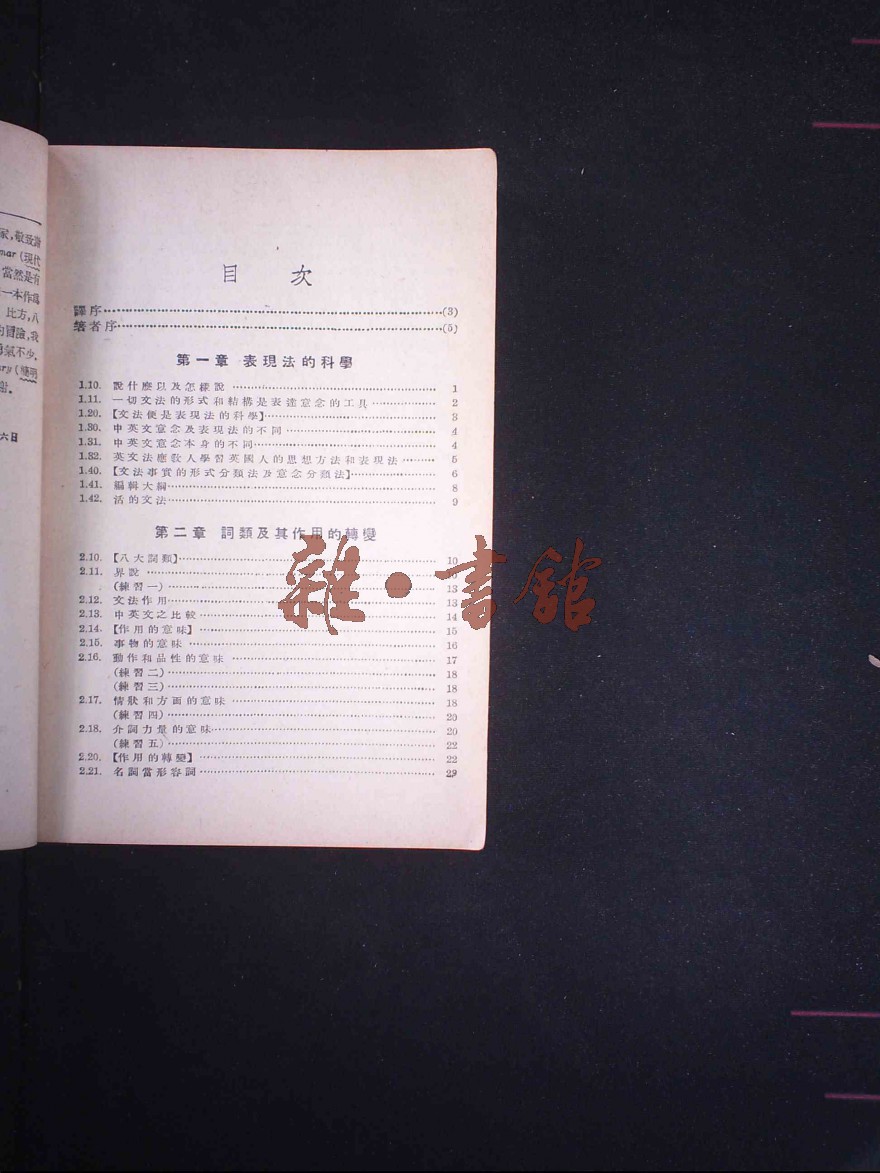 家,敬致謝
mar (現代
當然是有
一本作爲
比方,八
的冒險,我
勇氣不少.
ry (簡明
謝.
六日
目 次
譯序 (3)
著者序 (5)
第一章 表現法的科學
1.10. 說什麼以及怎樣說 1
1.11. 一切文法的形式和結構是表達意念的工具 2
1.20. 【文法便是表現法的科學】 3
1.30. 中英文意念及表現法的不同 4
1.31. 中英文意念本身的不同 4
1.32. 英文法應敎人學習英國人的思想方法和表現法 5
1.40. 【文法事實的形式分類法及意念分類法】 6
1.41. 編輯大綱 8
1.42. 活的文法 9
第二章 詞類及其作用的轉變
2.10. 【八大詞類】 10
2.11. 界說 10
(練習一) 13
2.12. 文法作用 13
2.13. 中英文之比較 14
2.14. 【作用的意味】 15
2.15. 事物的意味 16
2.16. 動作和品性的意味 17
(練習二) 18
(練習三) 18
2.17. 情狀和方面的意味 18
(練習四) 20
2.18. 介詞力量的意味 20
(練習五) 22
2.20. 【作用的轉變】 22
2.21. 名詞當形容詞 22
雜·書館